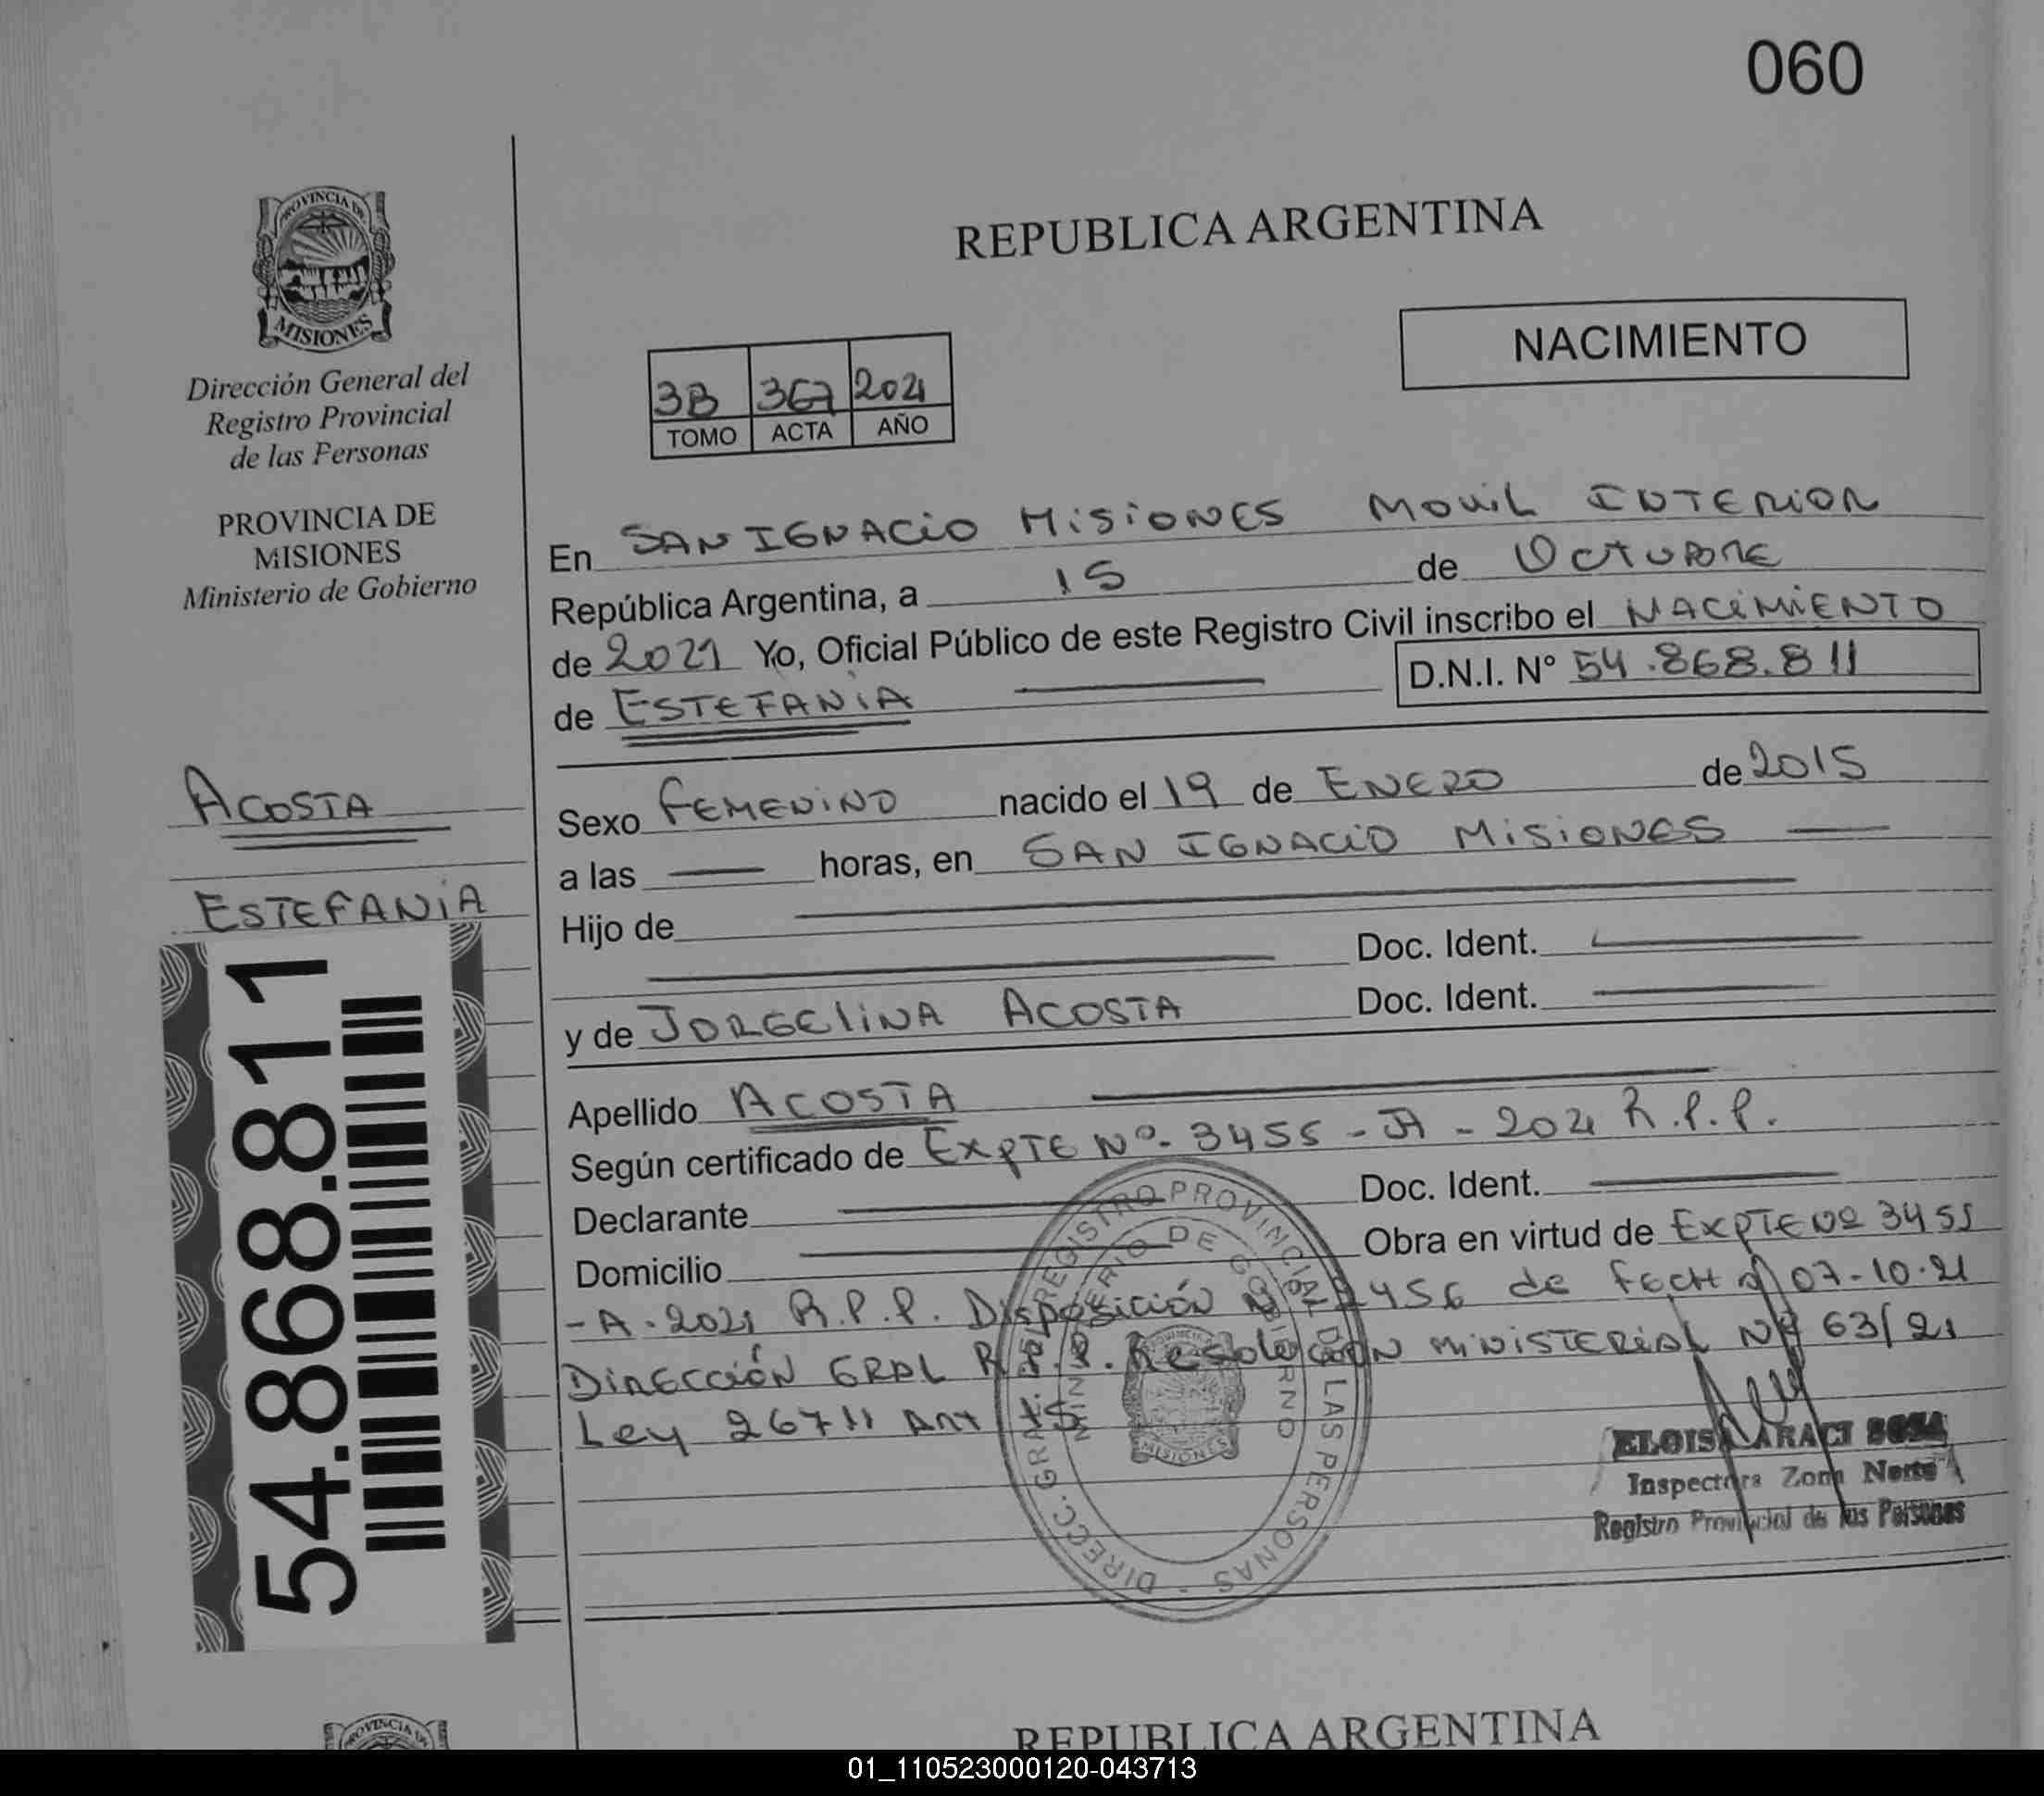 060
PROVINCIA DE
MISIONES
Dirección General del
Registro Provincial
de las Personas
PROVINCIA DE
MISIONES
Ministerio de Gobierno
ACOSTA
ESTEFANIA
54.868.811
REPUBLICA ARGENTINA
NACIMIENTO
3B 367 2021
TOMO ACTA AÑO
En SAN IGNACIO MISIONES MOVIL INTERIOR
República Argentina, a 15 de OCTUBRE
de 2021 Yo, Oficial Público de este Registro Civil inscribo el NACIMIENTO
de ESTEFANIA D.N.I. N° 54.868.811
Sexo FEMENINO nacido el 19 de ENERO de 2015
a las horas, en SAN IGNACIO MISIONES
Hijo de
Doc. Ident.
y de JORGELINA ACOSTA Doc. Ident.
Apellido ACOSTA
Según certificado de EXPTE Nº 3455 - A - 2021 R.P.P.
Declarante Doc. Ident.
Domicilio Obra en virtud de EXPTE Nº 3455
- A - 2021 R.P.P. Disposición Nº 2456 de fecha 07-10-21
DIRECCIÓN GRAL R.P.P. Resolución MINISTERIAL Nº 63/21
Ley 26711 Art
DIRECC. GRAL. DEL REGISTRO PROVINCIAL DE LAS PERSONAS -
MINISTERIO DE GOBIERNO
MISIONES
ELOISA ARACI SOSA
Inspectora Zona Norte
Registro Provincial de las Personas
PROVINCIA
REPUBLICA ARGENTINA
01_110523000120-043713